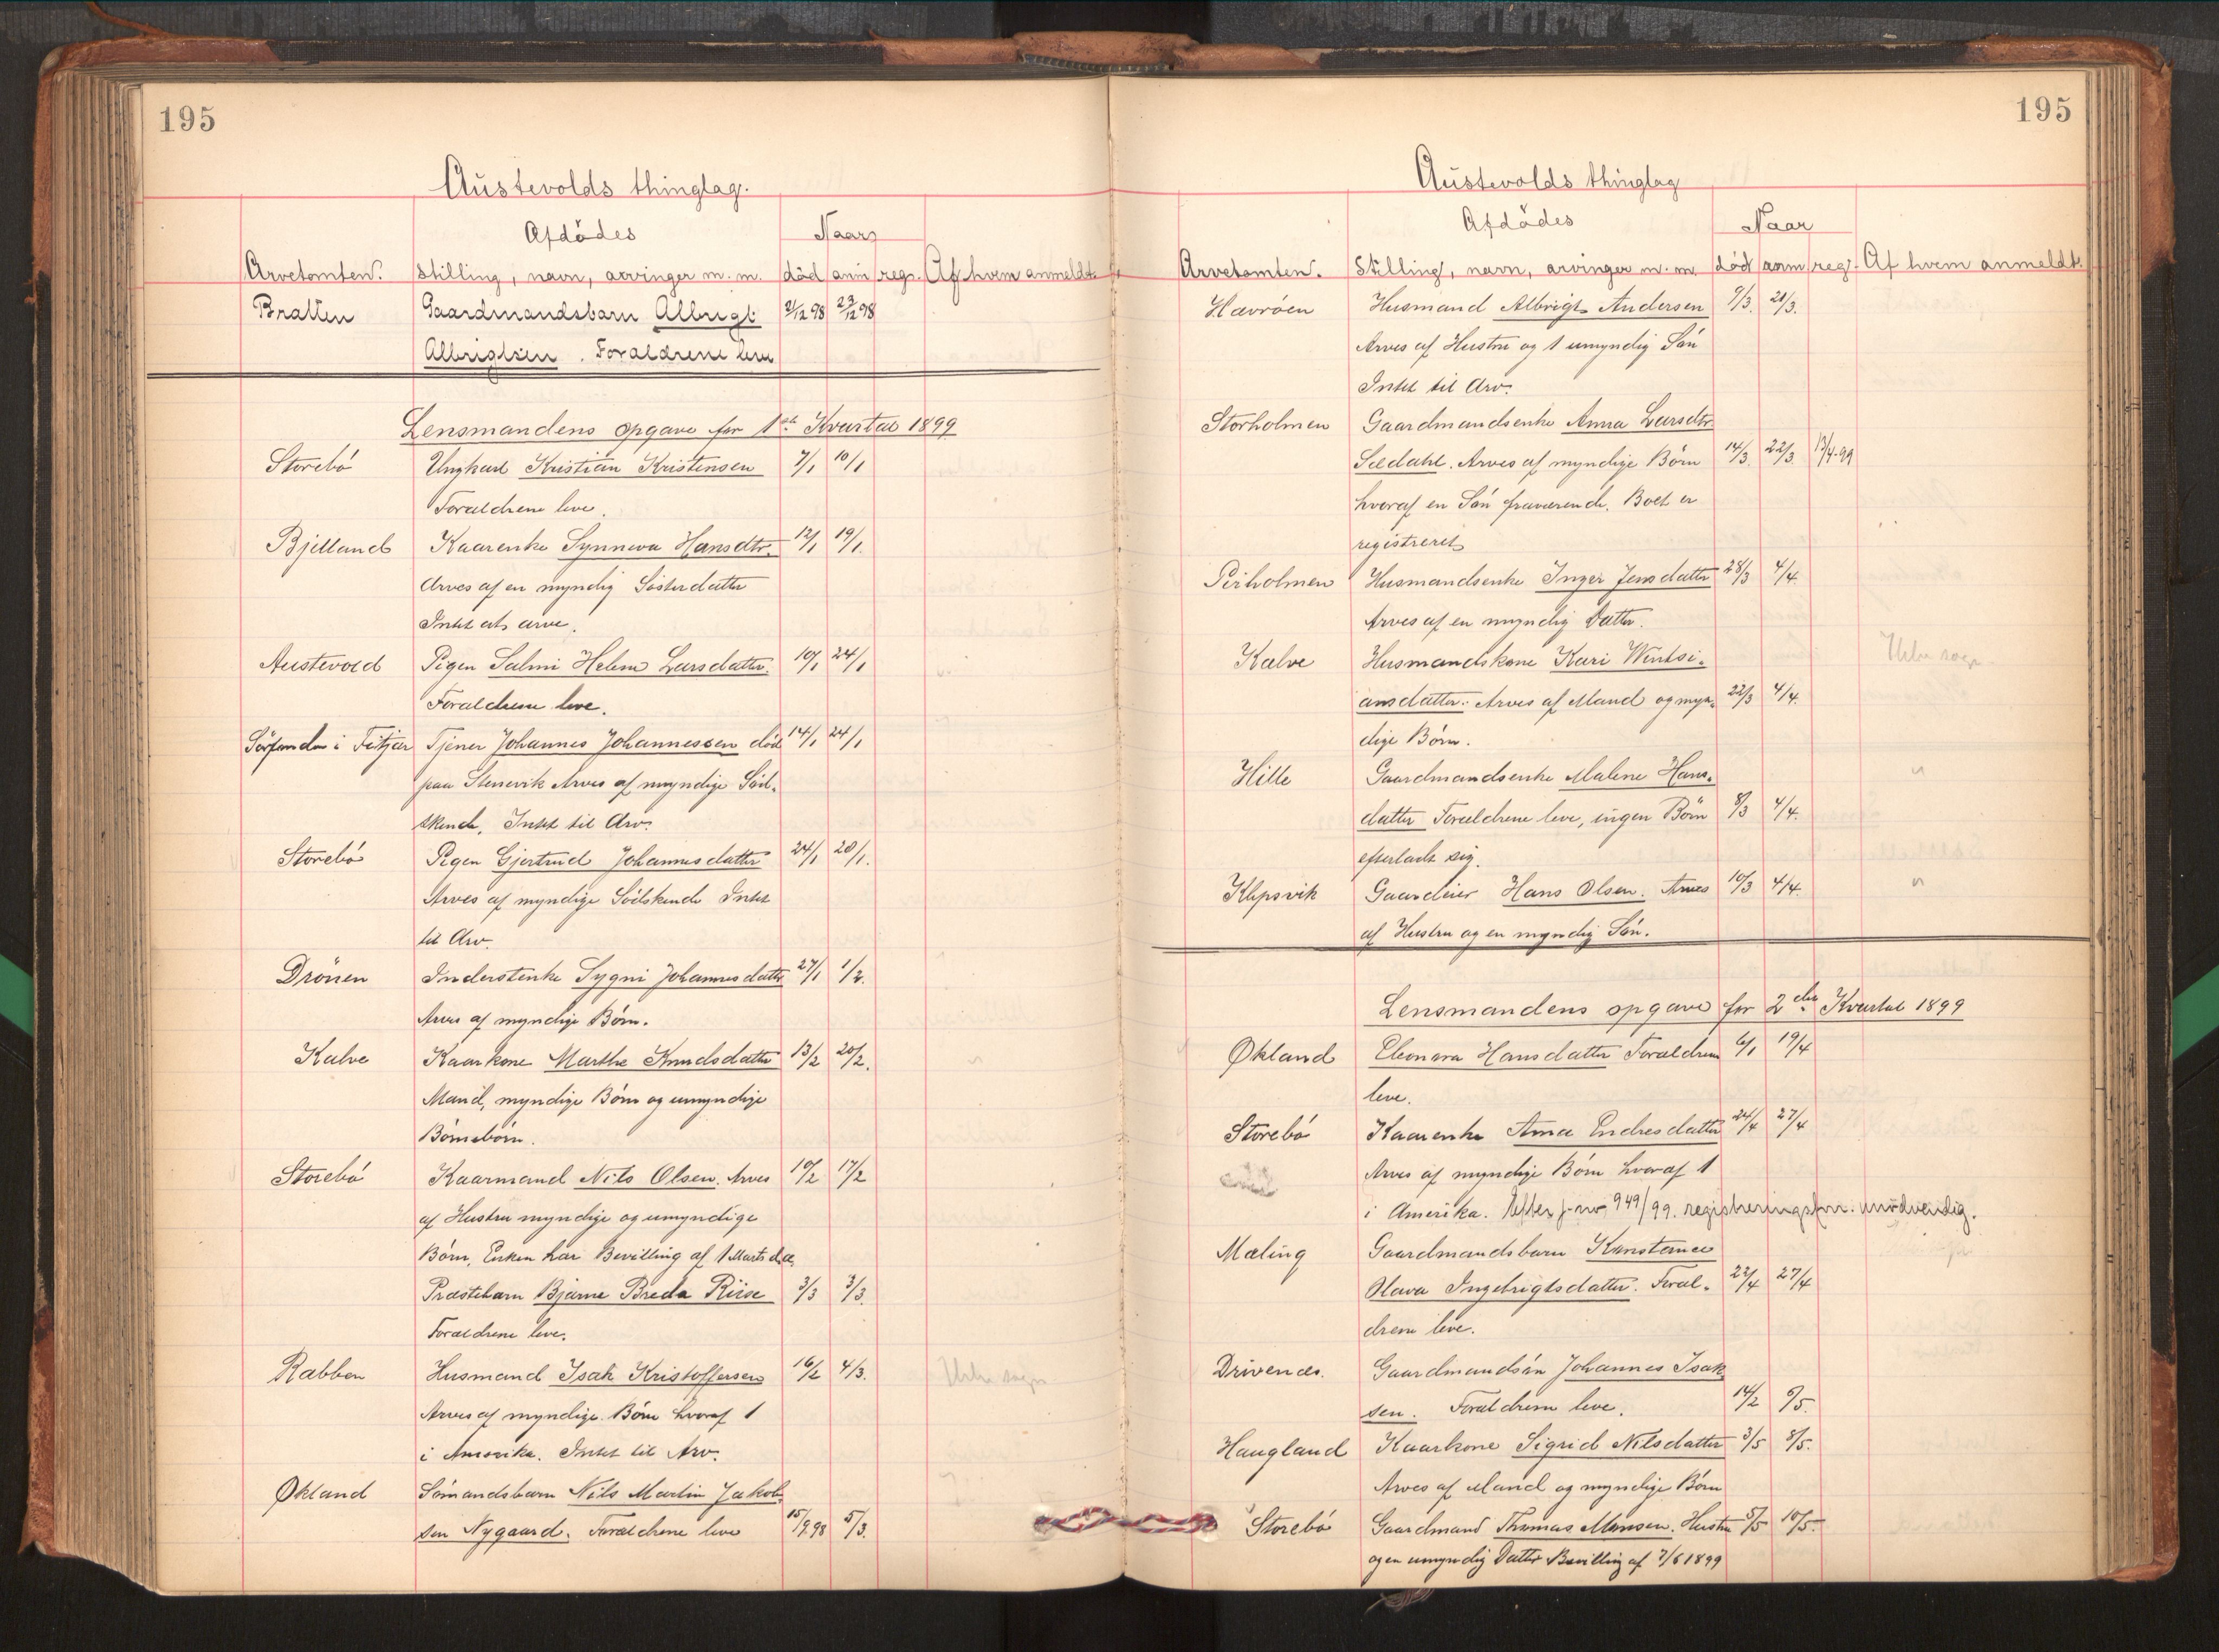 195
Austevolds thinglag.
Afdödes
Naar
Arvetomten. Stilling, navn, arvinger m. m. död anm reg. Af hvem anmeldt.
Bratten Gaardmandsbarn Albrigt 2/12 98 23/12 98
Albrigtsen. Forældrene leve
Lensmandens opgave for 1ste Kvartal 1899
Storebö Ungkarl Kristian Kristensen 7/1 10/1
Forældrene leve.
Bjelland Kaarenke Synneva Hansdtr. 12/1 19/1.
Arves af en myndig Sösterdatter
Intet at arve.
Austevold Pigen Salmi Helene Larsdatter. 10/1 24/1
Forældrene leve.
Sörfonden i Fitjar Tjener Johannes Johannessen död 14/1 24/1
paa Stenevik Arves af myndige Söd-
skende, Intet til Arv.
Storebö Pigen Gjertrud Johannesdatter 24/1 28/1.
Arves af myndige Södskende Intet
til Arv.
Drönen Inderstenke Sygni Johannesdatter 27/1 1/2.
Arves af myndige Börn.
Kalve Kaarkone Marthe Knudsdatter 13/2 20/2.
Mand, myndige Börn og umyndige
Börnebörn.
Storebö Kaarmand Nils Olsen. Arves 10/2 17/2
af Hustru myndige og umyndige
Börn, Enken har Bevilling af 1 Marts d.a.
Prestebarn Bjarne Breda Riise 3/3 3/3.
Forældrene leve.
Rabben Husmand Isak Kristoffersen 16/2 4/3.
Arves af myndige Börn hvoraf 1
i Amerika. Intet til Arv.
Økland Sömandsbarn Nils Martin Jakob-
sen Nygaard. Forældrene leve 15/9 98 5/3.
195
Austevolds thinglag
Afdödes
Naar
Arvetomten. Stilling, navn, arvinger m. m. död anm reg. Af hvem anmeldt.
Havröen Husmand Albrigt Andersen 9/3. 20/3.
Arves af Hustru og 1 umyndig Sön
Intet til Arv.
Storholmen Gaardmandsenke Anna Larsdtr
Seldahl. Arves af myndige Börn 14/3. 22/3. 13/4-99
hvoraf en Sön fraværende. Boet er
registreret
Perholmen Husmandsenke Inger Jensdatter 28/3 4/4.
Arves af en myndig Datter.
Kalve Husmandskone Kari Wintsi-
ansdatter. Arves af Mand og myn- 22/3 4/4.
dige Börn.
Hille Gaardmandsenke Malene Hans-
datter Forældrene leve, ingen Börn 8/3 4/4.
efterladt sig.
Klepsvik Gaardeier Hans Olsen. Arves 10/3 4/4. "
af Hustru og en myndig Sön.
Lensmandens opgave for 2det Kvartal 1899
Økland Eleonora Hansdatter Forældrene 6/1 19/4
leve.
Storebö Kaarenke Anna Endresdatter 24/4 27/4
Arves af myndige Börn hvoraf 1
i Amerika. Efter j-nr 949/99. registreringsforr. unödvendig.
Mæling Gaardmandsbarn Konstanse
Olava Ingebrigtsdatter. Foræl- 22/4 27/4
drene leve.
Drivenes. Gaardmandsön Johannes Isak
sen. Forældrene leve. 14/2 6/5.
Haugland Kaarkone Sigrid Nilsdatter 3/5 8/5.
Arves af Mand og myndige Börn
Storebö Gaardmand Thomas Monsen. Hustru 5/5 10/5.
og en umyndig Datter Bevilling af 7/6 1899